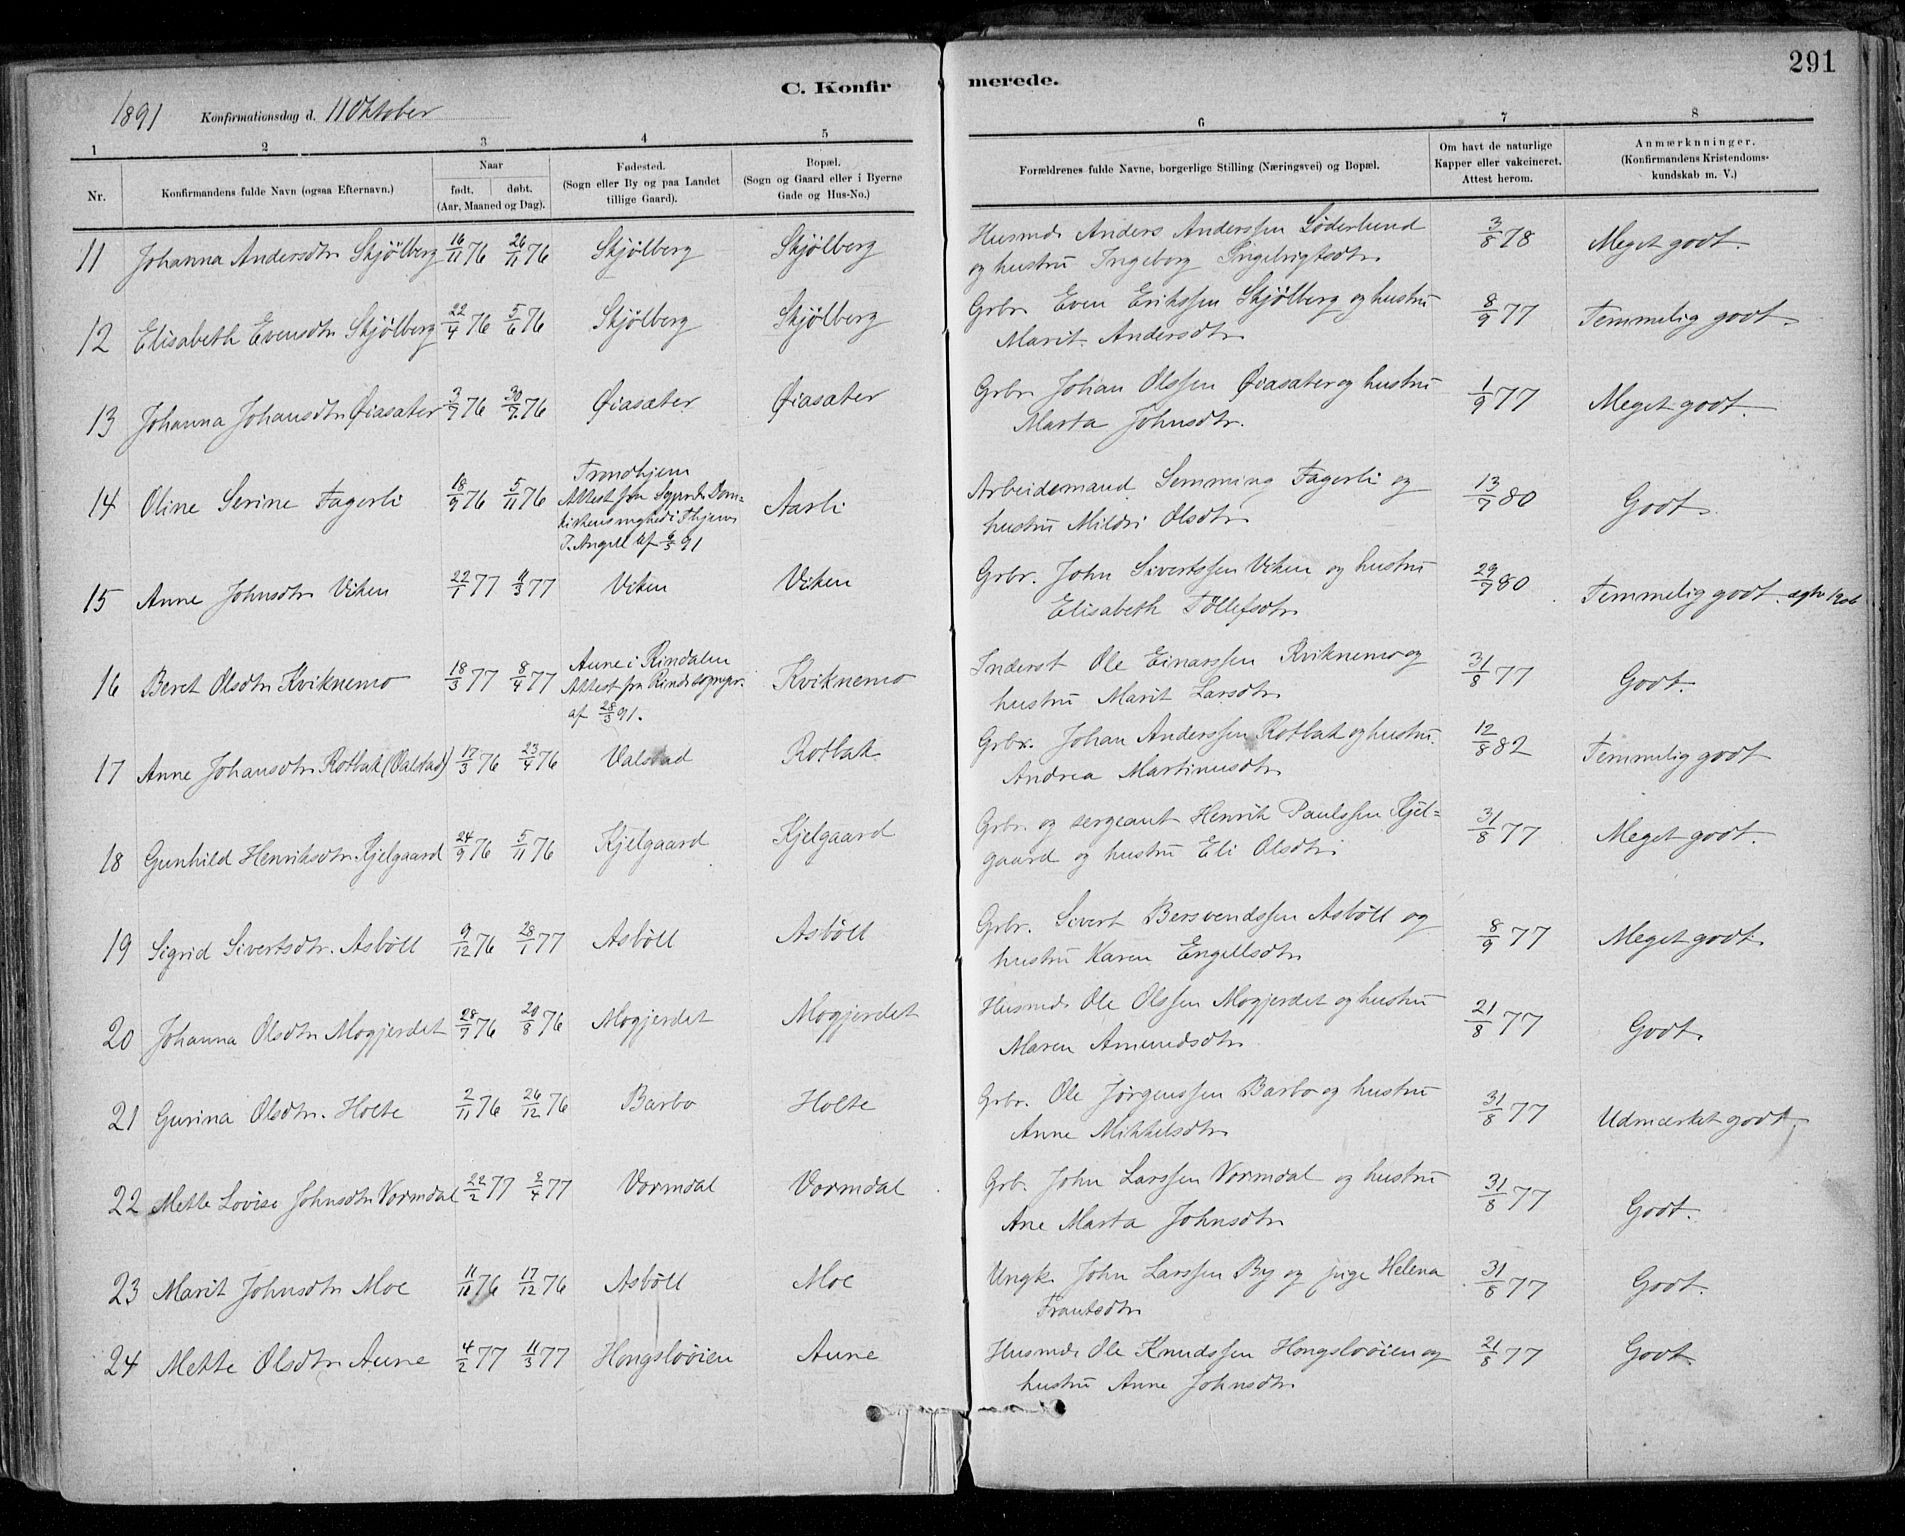 291
C. Konfirmerede.
1891 Konfirmationsdag d. 11 Oktober
1 2 3 4 5 6 7 8
Nr.
Konfirmandens fulde Navn (ogsaa Efternavn.)
Naar
født. døbt.
(Aar, Maaned og Dag).
Fødested.
(Sogn eller By og paa Landet
tillige Gaard).
Bopæl.
(Sogn og Gaard eller i Byerne
Gade og Hus-No.)
Forældrenes fulde Navne, borgerlige Stilling (Næringsvei) og Bopæl.
Om havt de naturlige
Kapper eller vakcineret.
Attest herom.
Anmærknninger.
(Konfirmandens Kristendoms-
kundskab m. V.)
11 Johanna Andersdtr Skjölberg 16/11 76 26/11 76 Skjölberg Skjölberg
Husmd. Anders Anderssen Söderlund 3/8 78 Meget godt.
og hustru Ingeborg Ingebrigtsdtr.
12 Elisabeth Evensdtr Skjölberg 22/4 76 5/6 76 Skjölberg Skjölberg
Grbr. Even Erikssen Skjölberg og hustru 8/9 77 Temmelig godt.
Marit Andersdtr.
13 Johanna Johansdtr Øiasæter 3/7 76 30/7 76 Øiasæter Øiasæter
Grbr. Johan Olssen Øiasæter og hustru 1/9 77 Meget godt.
Marta Johnsdtr.
14 Oline Serine Fagerli 18/9 76 5/11 76 Aarli
Trondhjem
Attest fra Sognepr. Dom-
kirkens menighed i Thjem
T. Angell af 6/3 91
Arbeidsmand Semming Fagerli og 13/7 80 Godt.
hustru Mildri Olsdtr.
15 Anne Johnsdtr Viken 22/1 77 11/3 77 Viken Viken
Grbr. John Sivertssen Viken og hustru 29/7 80 Temmelig godt.
Elisabeth Töllefsdtr.
16 Beret Olsdtr Kviknemo 18/3 77 8/4 77 Kviknemo
Aune i Rindalen
Attest fra Rinds sognepr.
af 28/3 91.
Inderst Ole Einarssen Kviknemo og 31/8 77 Godt.
hustru Marit Larsdtr.
17 Anne Johansdtr Rotbak (Valstad) 17/3 76 23/4 76 Valstad Rotbak
Grbr. Johan Anderssen Rotbak og hustru 12/8 82 Temmelig godt
Andrea Martinusdtr.
18 Gunhild Henriksdtr Kjelgaard 24/9 76 5/11 76 Kjelgaard Kjelgaard
Grbr. og sergeant Henrik Paulssen Kjel- 31/8 77 Meget godt.
gaard og hustru Eli Olsdtr.
19 Sigrid Sivertsdtr. Asböll 9/12 76 28/1 77 Asböll Asböll
Grbr. Sivert Bersvendssen Asböll og 8/9 77 Meget godt.
hustru Karen Engellsdtr.
20 Johanna Olsdtr Mogjerdet 28/7 76 20/8 76 Mogjerdet Mogjerdet
Husmd. Ole Olssen Mogjerdet og hustru 21/8 77 Godt.
Maren Amundsdtr.
21 Gurina Olsdtr. Holte 2/11 76 26/12 76 Barbo Holte
Grbr. Ole Jörgenssen Barbo og hustru 31/8 77 Udmærket godt.
Anne Mikkelsdtr.
22 Mette Lovise Johnsdtr Vormdal 22/2 77 2/4 77 Vormdal Vormdal
Grb. John Larssen Vormdal og hustru 31/8 77 Godt.
Ane Marta Johnsdtr.
23 Marit Johnsdtr Moe 11/10 76 17/12 76 Asböll Moe
Ungk. John Larssen By og pige Helena 31/8 77 Godt.
Frantsdtr.
24 Mette Olsdtr Aune 4/2 77 11/3 77 Hongslööien Aune
Husmd. Ole Knudssen Hongslööien og 21/8 77 Godt.
hustru Anne Johnsdtr.